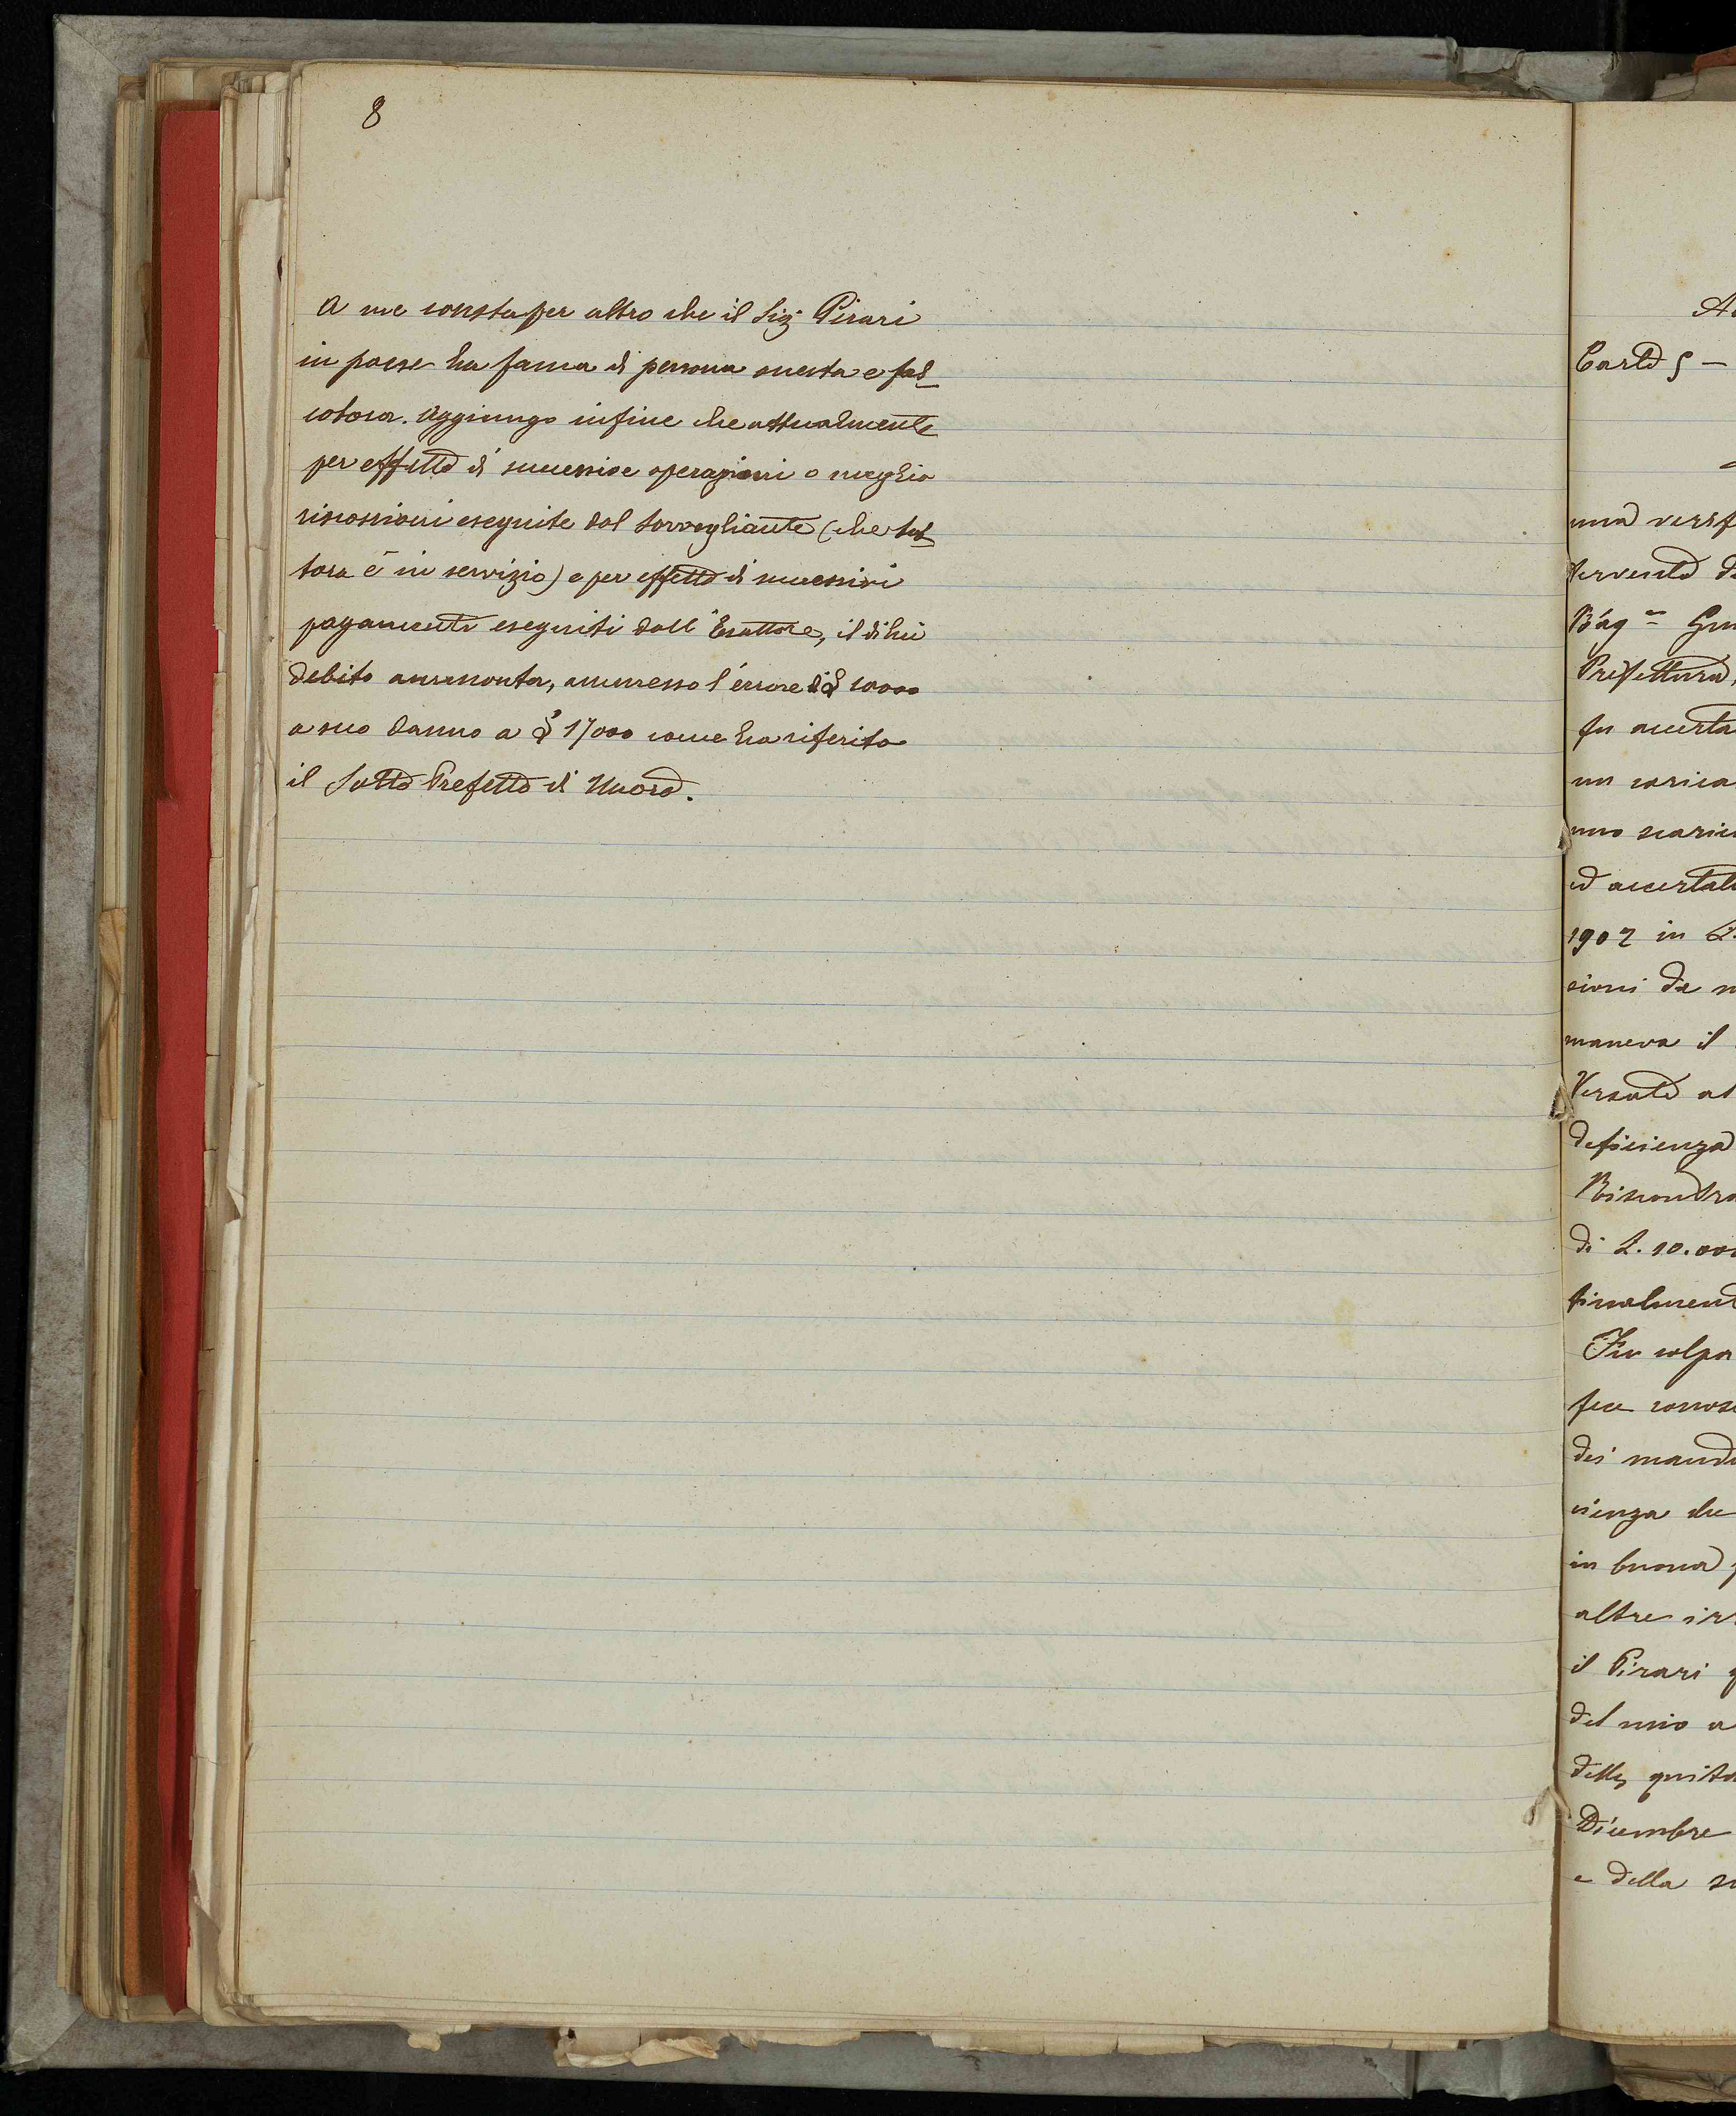 8
A me consta per altro che il Sig. Pirari
in paese ha fama di persona onesta e fa-
coltosa. Aggiungo infine che attualmente
per effetto di successive operazioni o meglio
riscossioni eseguite dal sorvegliante (che tut-
tora è in servizio) e per effetto di successivi
pagamenti eseguiti dall'Esattore, il di lui
debito ammonta, ammesso l'errore di £ 10000
a suo danno a £ 17000 come ha riferito
il Sotto Prefetto di Nuoro.
Carta 5 —
una verif
tervento d
Rag.re Giu
Prefettura,
fu accerta
un carica
uno scaric
ed accertat
1902 in L.
sioni da
maneva il
Versato al
deficienza
Riscontra
di L. 10.000
finalment
Fu colpa
fece conosc
dei manda
cienza che
in buona
altre ir
il Pirari
del mio a
delle quita
Dicembre
e della s